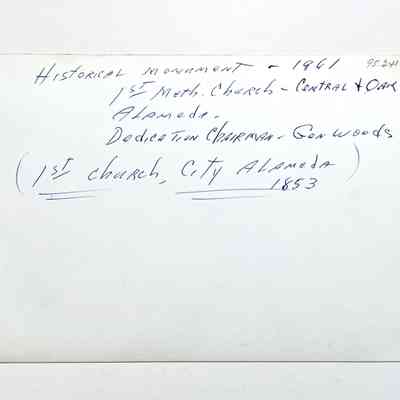 Historical monument - 1961
1st Meth. Church - Central & Oak
Alameda.
Dedication Chairman - Gen Woods
(1st church, City Alameda)
1853